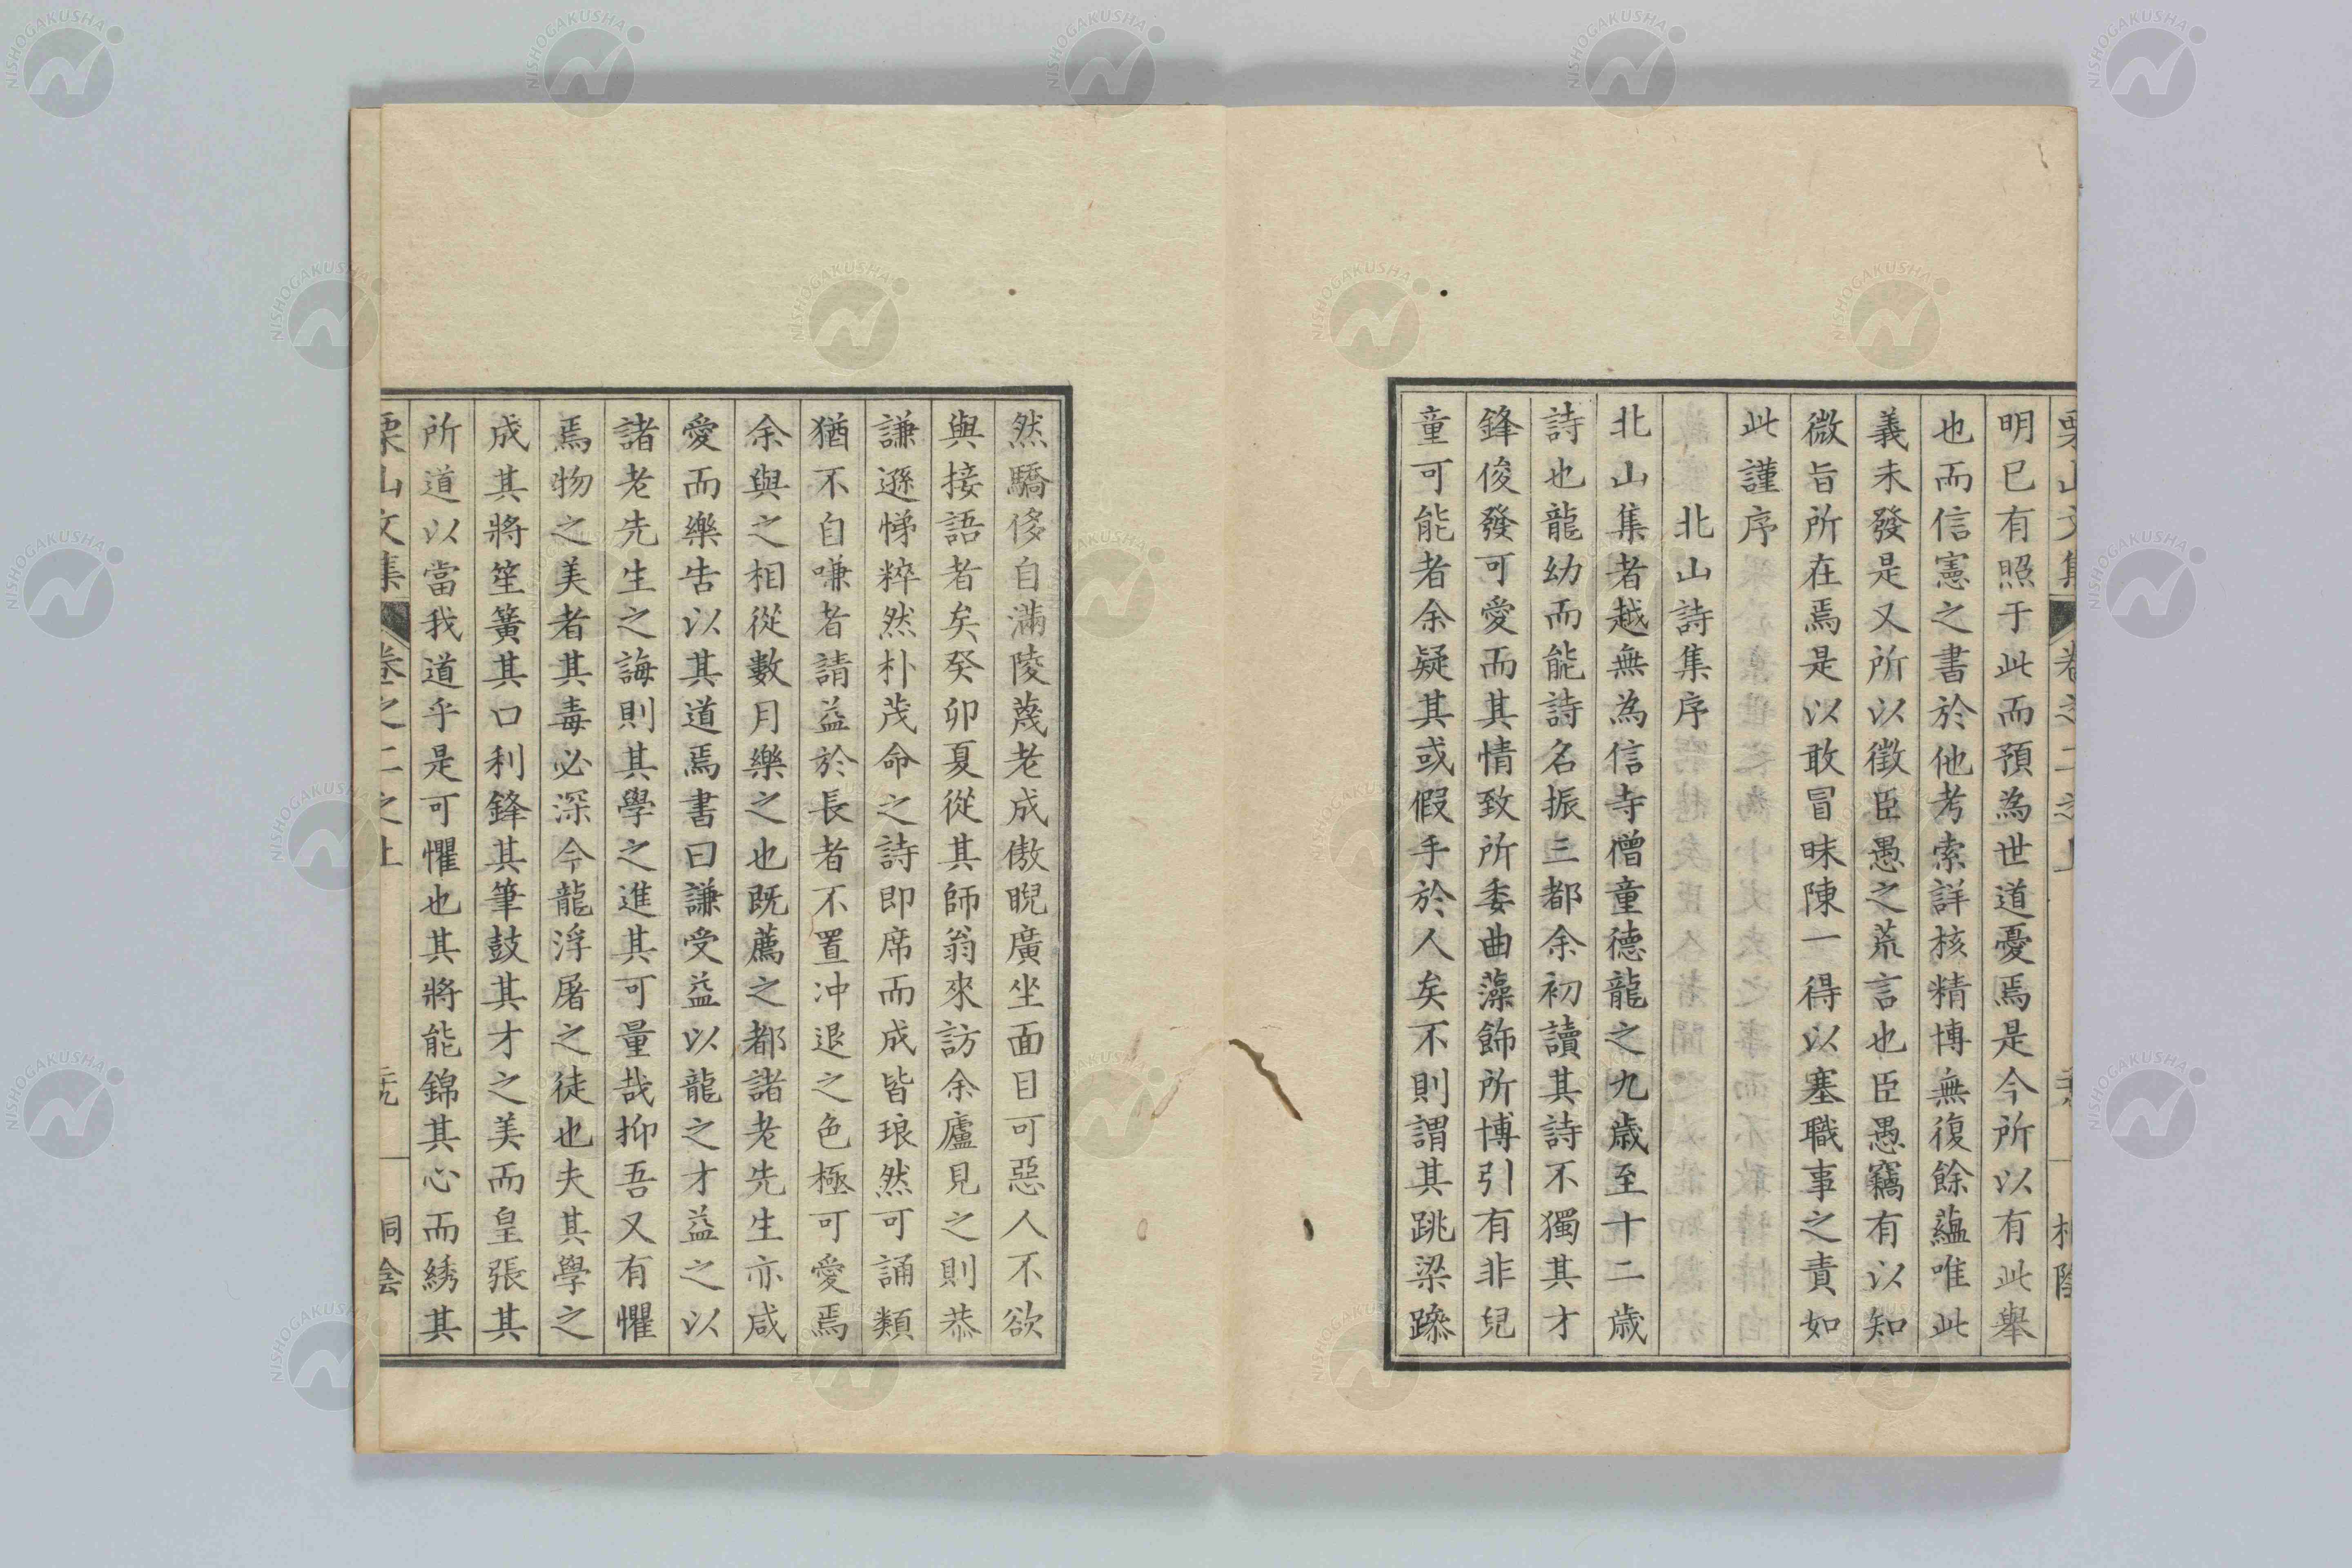 栗山文集 卷之二之上
明已有照于此而預為世道憂焉是今所以有此舉
也而信憲之書於他考索詳核精博無復餘蘊唯此
義未發是又所以徵臣愚之荒言也臣愚竊有以知
微旨所在焉是以敢冒昧陳一得以塞職事之責如
此謹序
北山詩集序
北山集者越無為信寺僧童德龍之九歳至十二歳
詩也龍幼而能詩名振三都余初讀其詩不獨其才
鋒俊發可愛而其情致所委曲藻飾所博引有非兒
童可能者余疑其或假手於人矣不則謂其跳梁蹂
然驕侈自滿陵蔑老成傲睨廣坐面目可惡人不欲
與接語者矣癸卯夏從其師翁來訪余廬見之則恭
謙遜悌粹然朴茂命之詩即席而成皆琅然可誦類
猶不自嗛者請益於長者不置冲退之色極可愛焉
余與之相從數月樂之也既薦之都諸老先生亦咸
愛而樂告以其道焉書曰謙受益以龍之才益之以
諸老先生之誨則其學之進其可量哉抑吾又有懼
焉物之美者其毒必深今龍浮屠之徒也夫其學之
成其將笙簧其口利鋒其筆鼓其才之美而皇張其
所道以當我道乎是可懼也其將能錦其心而綉其
栗山文集 卷之二之上
NISHOGAKUSHA